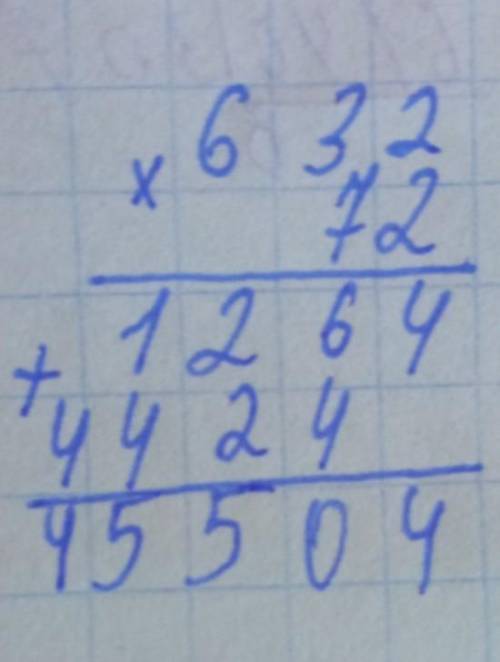 × 632
72
1264
+
4424
45504